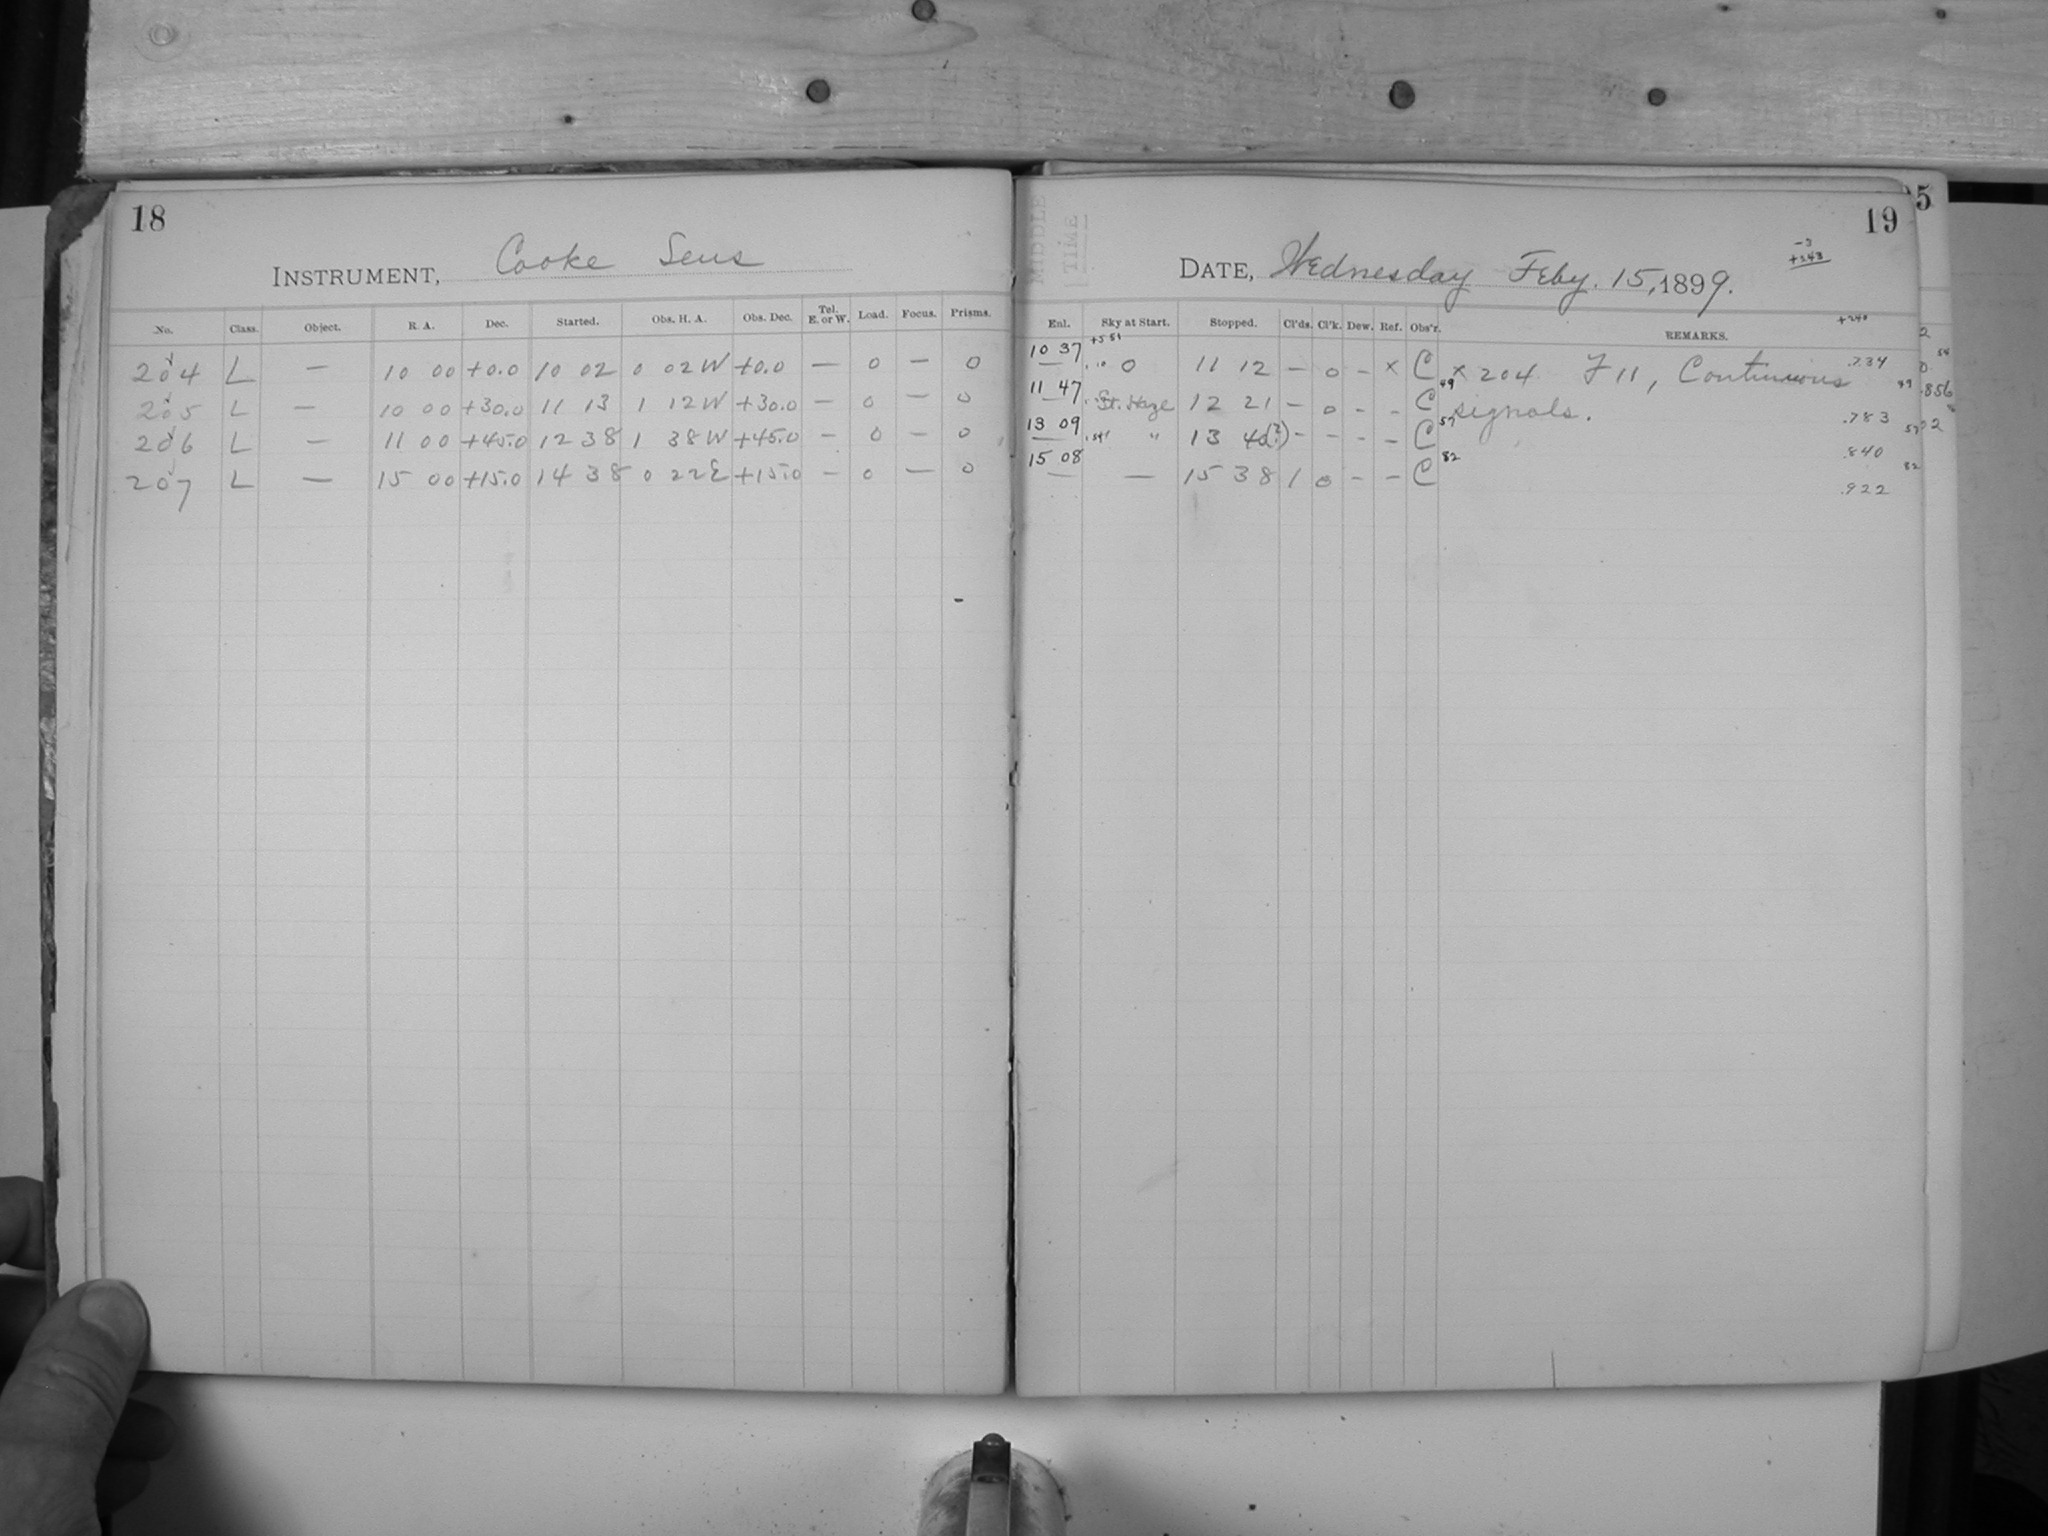 18
INSTRUMENT, Cooke Lens
No. Class. Object. R. A. Dec. Started. Obs. H. A. Obs. Dec. Tel. E. or W. Load. Focus. Prisms.
204 L — 10 00 +0.0 10 02 0 02 W +0.0 — 0 — 0
205 L — 10 00 +30.0 11 13 1 12 W +30.0 — 0 — 0
206 L — 11 00 +45.0 12 38 1 38 W +45.0 — 0 — 0
207 L — 15 00 +15.0 14 38 0 22 E +15.0 — 0 — 0
5
19
MIDDLE
TIME
-3
+243
DATE, Wednesday Feby. 15, 1899.
+240
Enl. Sky at Start. Stopped. Cl'ds. Cl'k. Dew. Ref. Obs'r. REMARKS.
10 37 — 0 11 12 — 0 — × C × 204 F 11, Continuous .734
11 47 — St. Haze 12 21 — 0 — — C 49 signals. 49 .783
13 09 — " " 13 40(?) — — — — C 57 57 .840
15 08 — — 15 38 1 0 — — C 82 82 .922
.856